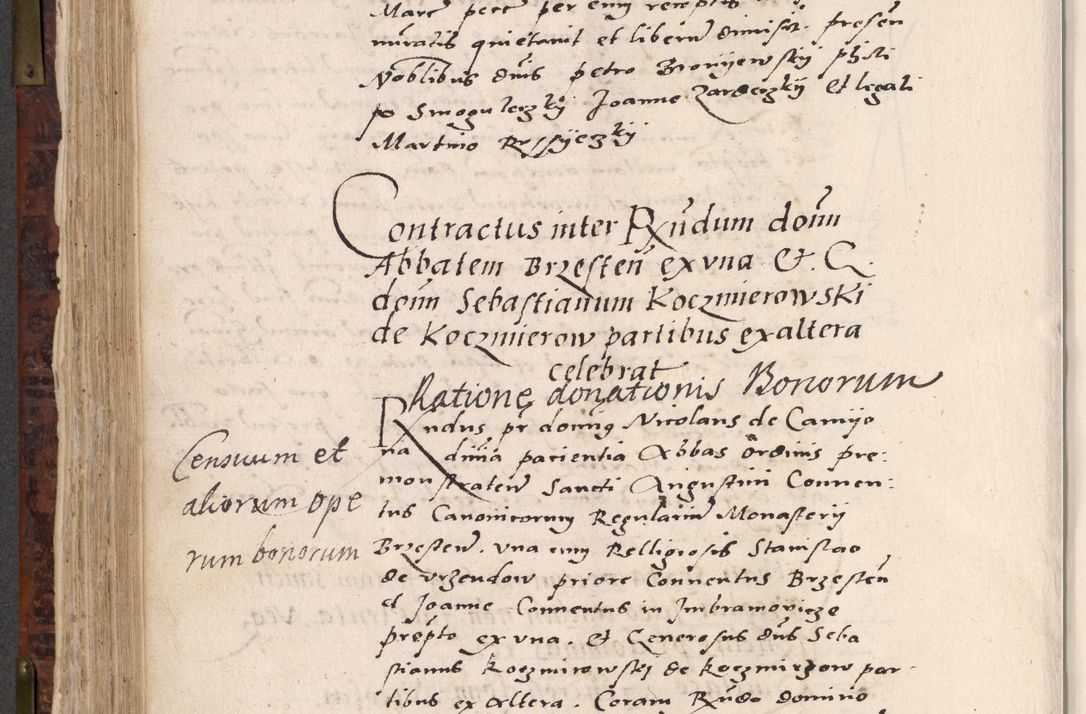 Marc pecc per eum receptis
muratis quietavit et liberu dimisit. presen
Noblibus dnis petro Bronijewskij phili
po Smoguleczkij Joanne Zardeczkij et legali
Martino Rossijeczkij
Contractus inter Rndum domn
Abbatem Brzesten ex una & G.
domn Sebastianum Koczmierowski
de Koczmierow partibus ex altera
celebrat
Ratione donationis Bonorum
Rndus pr domnus Nicolaus de Camijo
na divina pacientia Abbas Ordinis pre:
monstraten Sancti Augustini Conven:
tus Canonicorum Regulariu Monasterij
Brzesten. una cum Relligiosis Stanislao
de Urzendow priore Conventus Brzesten
et Joanne Conventus in Imbramovicze
prepto ex una. Et Generosus dns Seba
stianus Koczmirowskij de Koczmirzow par
tibus ex altera. Coram Rndo domino
Censuum et
aliorum ope
rum bonorum